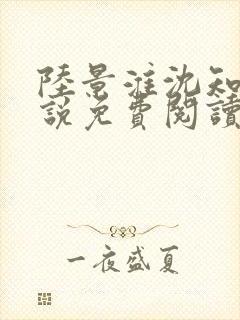 陸景淮沈知
說免費閱讀
一夜盛夏